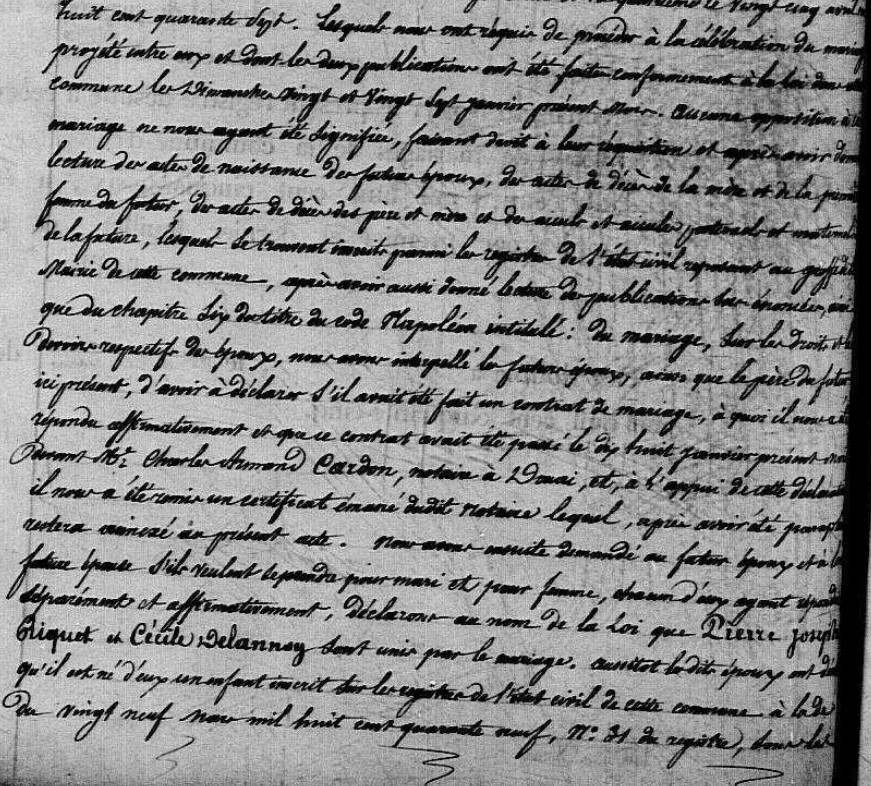 huit cent quarante sept. Lesquels nous ont requis de procéder à la célébration du mariage
projété entre eux et dont les deux publications ont été faites conformement à la loi dans
commune les Dimanches vingt et vingt sept janvier présent mois. Aucune opposition à
mariage ne nous ayant été signifiée, faisant droit à leur réquisition et après avoir donné
lecture des actes de naissance des futurs époux, des actes de décès de la mère et de la première
femme du futur, des actes de décès des père et mère et des aieuls et aieules paternels et maternels
de la future, lesquels se trouvent inscrits parmi les registres de l'état civil reposant au greffe
Mairie de cette commune, après avoir aussi donné lecture des publications sus énoncées, ainsi
que du chapitre six du titre du code Napoléon intitullé: du mariage, sur les droits et les
devoirs respectifs des époux, nous avons interpellé les futurs époux, ainsi que le père du futur
ici présent, d'avoir à déclarer s'il avait été fait un contrat de mariage, à quoi il nous a été
répondu affirmativement et que ce contrat avait été passé le dix huit janvier présent mois
devant Mr. Charles Armand Cardon, notaire à Douai, et, à l'appui de cette déclaration
il nous a été remis un certificat émané dudit notaire lequel, après avoir été paraphé
restera annexé au présent acte. Nous avons ensuite demandé au futur époux et à la
future épouse s'ils veulent se prendre pour mari et pour femme, chacun d'eux ayant répondu
séparément et affirmativement, déclarons au nom de la Loi que Pierre Joseph
Criquet et Cécile Delannoy sont unis par le mariage. Aussitôt les dits époux ont
qu'il est né d'eux un enfant inscrit sur les registres de l'état civil de cette commune à la
du vingt neuf mars mil huit cent quarante neuf, No. 31 du registre, sous les